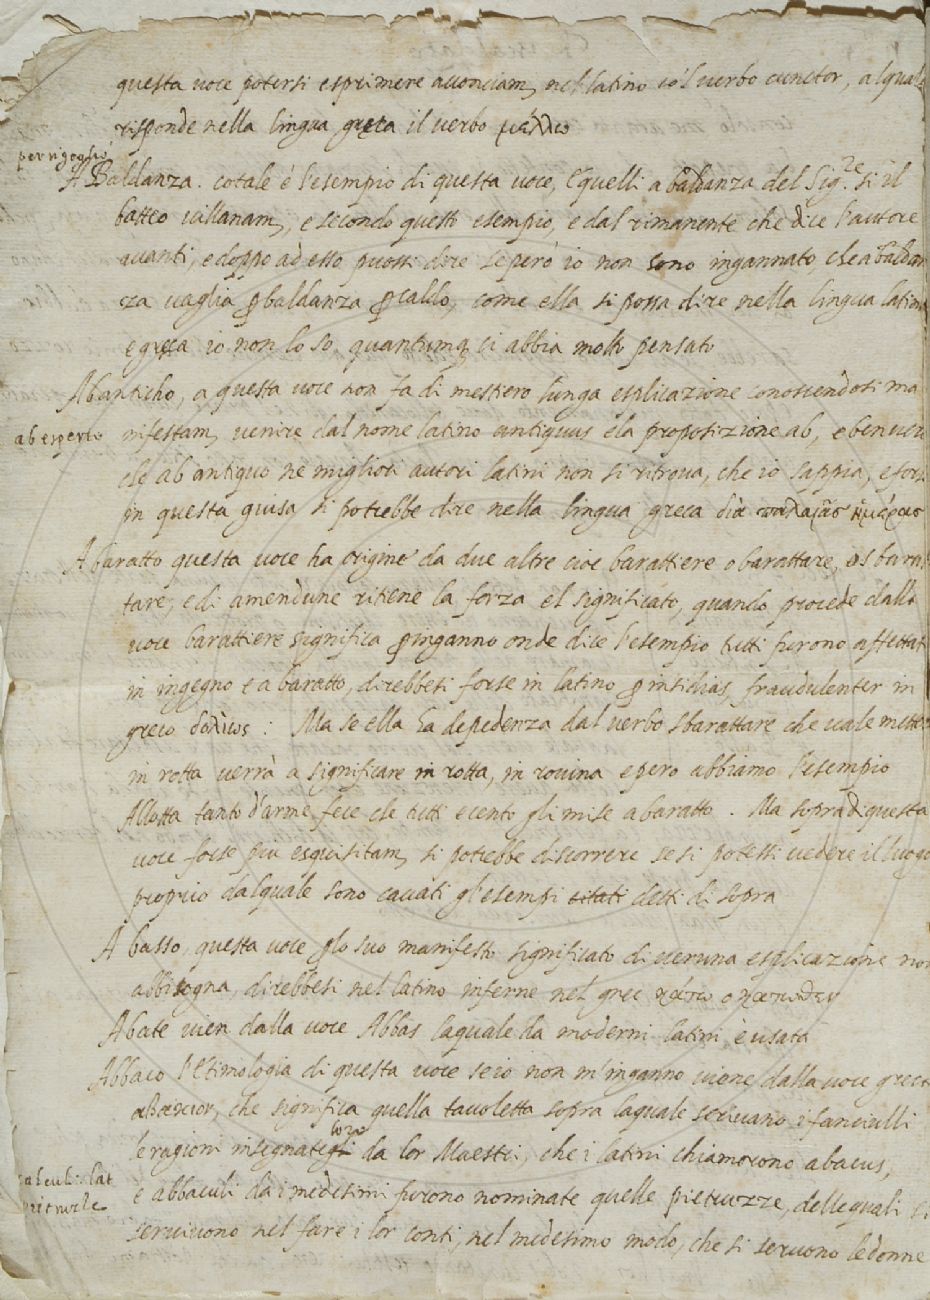 questa voce potersi esprimere acconciam, nel latino co'l verbo cunctor, a lquale
risponde nella lingua greca il verbo μελλω
per rigoglio
A Baldanza. cotale è l'esempio di questa voce, E quelli a baldanza del Sig.re si il
batteo villanam, e secondo questo esempio, e dal rimanente che dice l'autore
avanti, e doppo ad esso puossi dire se però io non sono ingannato, che a baldan
za vaglia p baldanza p caldo, come ella si possa dire nella lingua latina
e greca io non lo so, quantunq ci abbia molto pensato
Abanticho, a questa voce non fa di mestiero lunga esplicazione conoscendosi ma
ab esperto
nifestam, venire dal nome latino antiquus e la proposizione ab, e benvero
che ab antiquo ne migliori autori latini non si ritrova, che io sappia, e forse
in questa guisa si potrebbe dire nella lingua greca διὰ παλαιᾶσ ἡμέρασ
A baratto questa voce ha origine da due altre cioè barattiere o barattare, o sbarat
tare, e di amendune ritiene la forza e'l significato, quando procede dalla
voce barattiere significa p inganno onde dice l'esempio tutti furono affettati
in ingegno e a baratto, direbbesi forse in latino p insidias, fraudulenter in
greco δολίως: Ma se ella ha dependenza dal verbo sbarattare che vale mettere
in rotta verrà a significare in rotta, in rovina e pero abbiamo l'esempio
Allotta tanto d'arme fece che tutti e cento gli mise a baratto. Ma sopra di questa
voce forse piu esquisitam, si potrebbe discorrere se si potessi vedere il luogo
proprio dal quale sono cavati gl'esempi citati detti di sopra
A basso, questa voce p lo suo manifesto significato di veruna esplicazione non
abbisogna, direbbesi nel latino inferne nel grec κάτω ο κατωθεν
Abate vien dalla voce Abbas laquale da moderni latini è usata
Abbaco l'Etimologia di questa voce se io non m'inganno viene dalla voce greca
αβακιον, che significa quella tavoletta sopra laquale scrivano i fanciulli
le ragioni insegnategli loro da lor Maestri, che i latini chiamorono abacus,
calculi: lat
pietruzle
e abbaculi da i medesimi furono nominate quelle pietruzze, delle quali si
servivono nel fare i lor conti, nel medesimo modo, che si servono le donne